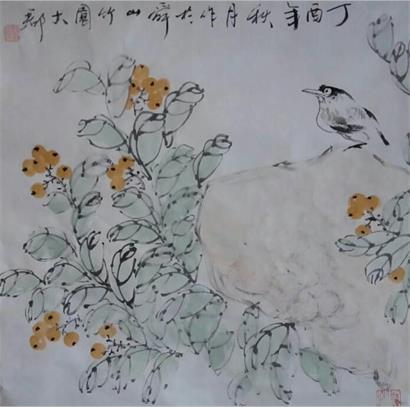 丁酉年秋月作於舜山竹園大郡